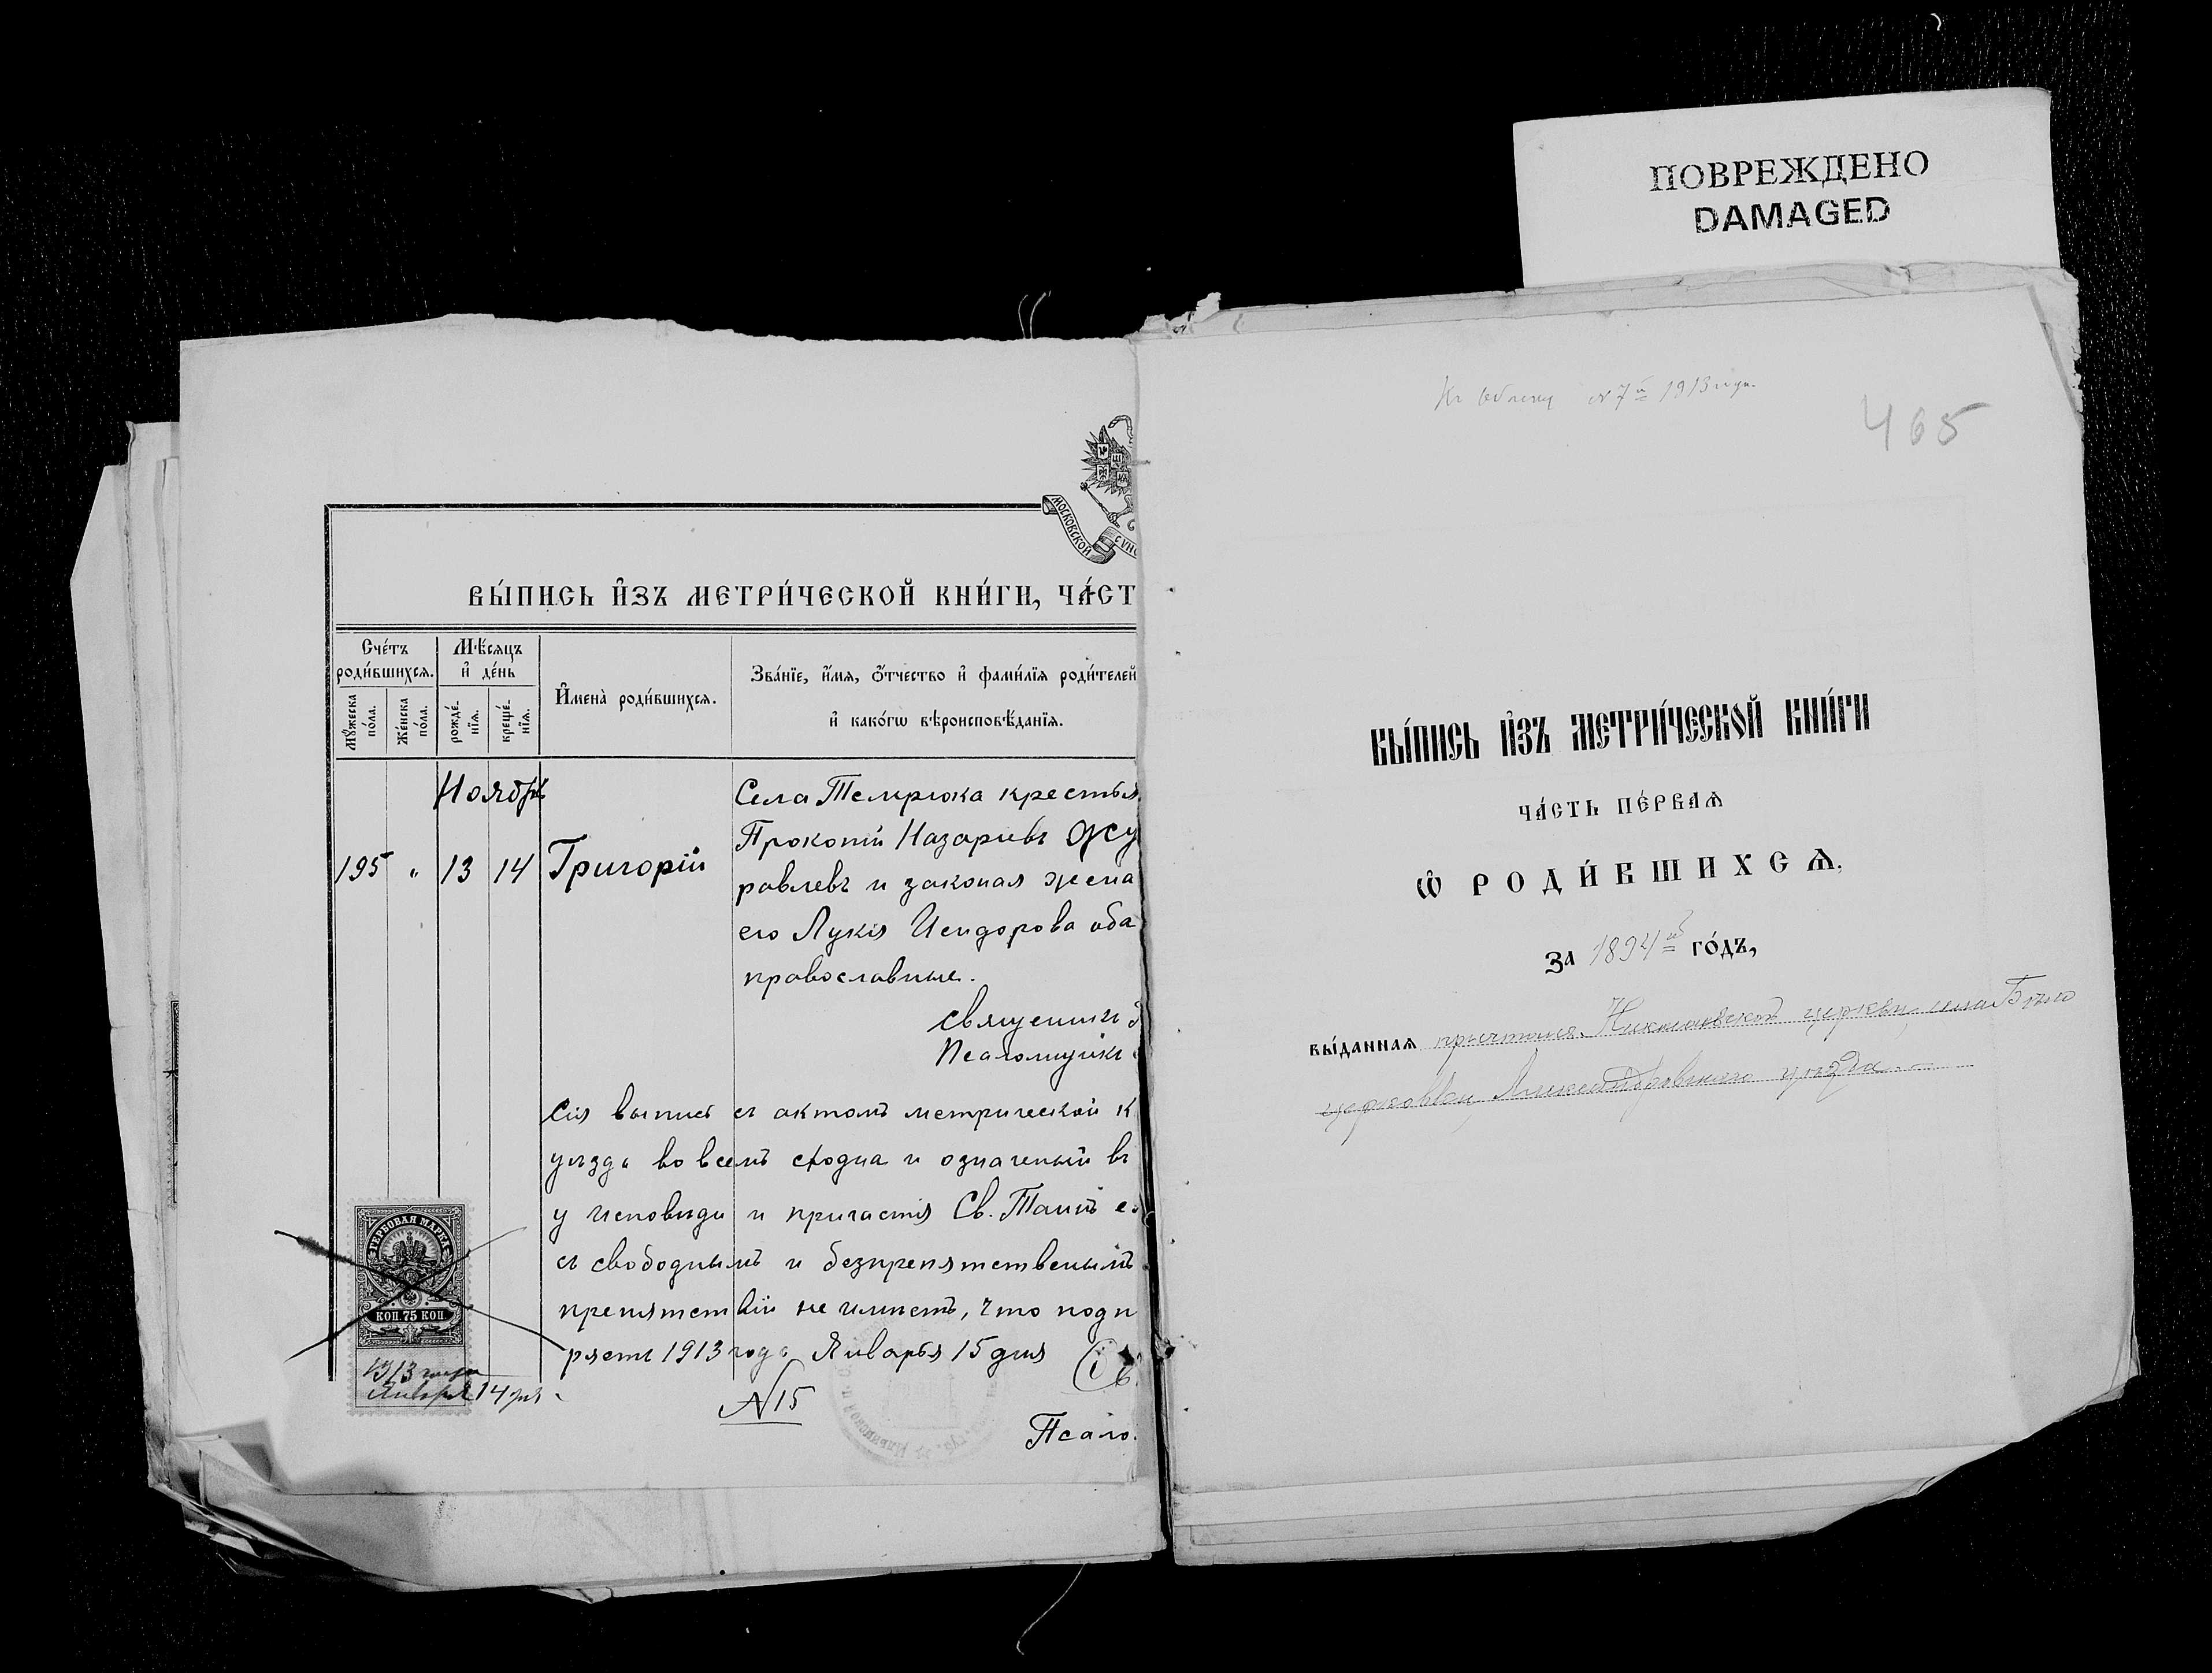 ПОВРЕЖДЕНО
DAMAGED
МОСКОВСКОЙ
СѴНО
ВЫ́ПИСЬ И҆ЗЪ МЕТРИ́ЧЕСКОЙ КНИ́ГИ, ЧА́СТ
Сче́тъ роди́вшихсѧ.
Мѣ́сѧцъ и҆ де́нь
Мꙋ́жеска по́ла.
Же́нска по́ла.
рожде́нїѧ.
креще́нїѧ.
И҆мена̀ роди́вшихсѧ.
Зва́нїе, и҆́мѧ, ѻ҆́тчество и҆ фами́лїѧ роди́телей
и҆ како́гѡ вѣроисповѣ́данїѧ.
Ноябрь
195 " 13 14 Григорій
Села Темрюка крестья
Прокопій Назаріевъ Жу
равлевъ и законая жена
его Лукія Исидорова оба
православные.
Священникъ
Псаломщикъ
Сія выпись съ актомъ метрической к
уѣзда во всемъ сходна и означеный въ
у исповѣди и причастія Св. Таинъ
съ свободнымъ и безпрепятственымъ
препятствій не имѣетъ, что подп
ряетъ 1913 года Января 15 дня
№ 15
Псало
ГЕРБОВАЯ МАРКА
КОП. 75 КОП.
1913 года
Января 14 дня
№ 7й 1913 года.
465
ВЫ́ПИСЬ И҆ЗЪ МЕТРИ́ЧЕСКОЙ КНИ́ГИ
ЧА́СТЬ ПЕ́РВАѦ
Ѡ҆ РОДИ́ВШИХСѦ,
ЗА 1894й ГО́ДЪ,
ВЫ́ДАННАѦ причтомъ Николаевской церкви села Бѣло
церковки, Александровского уѣзда.